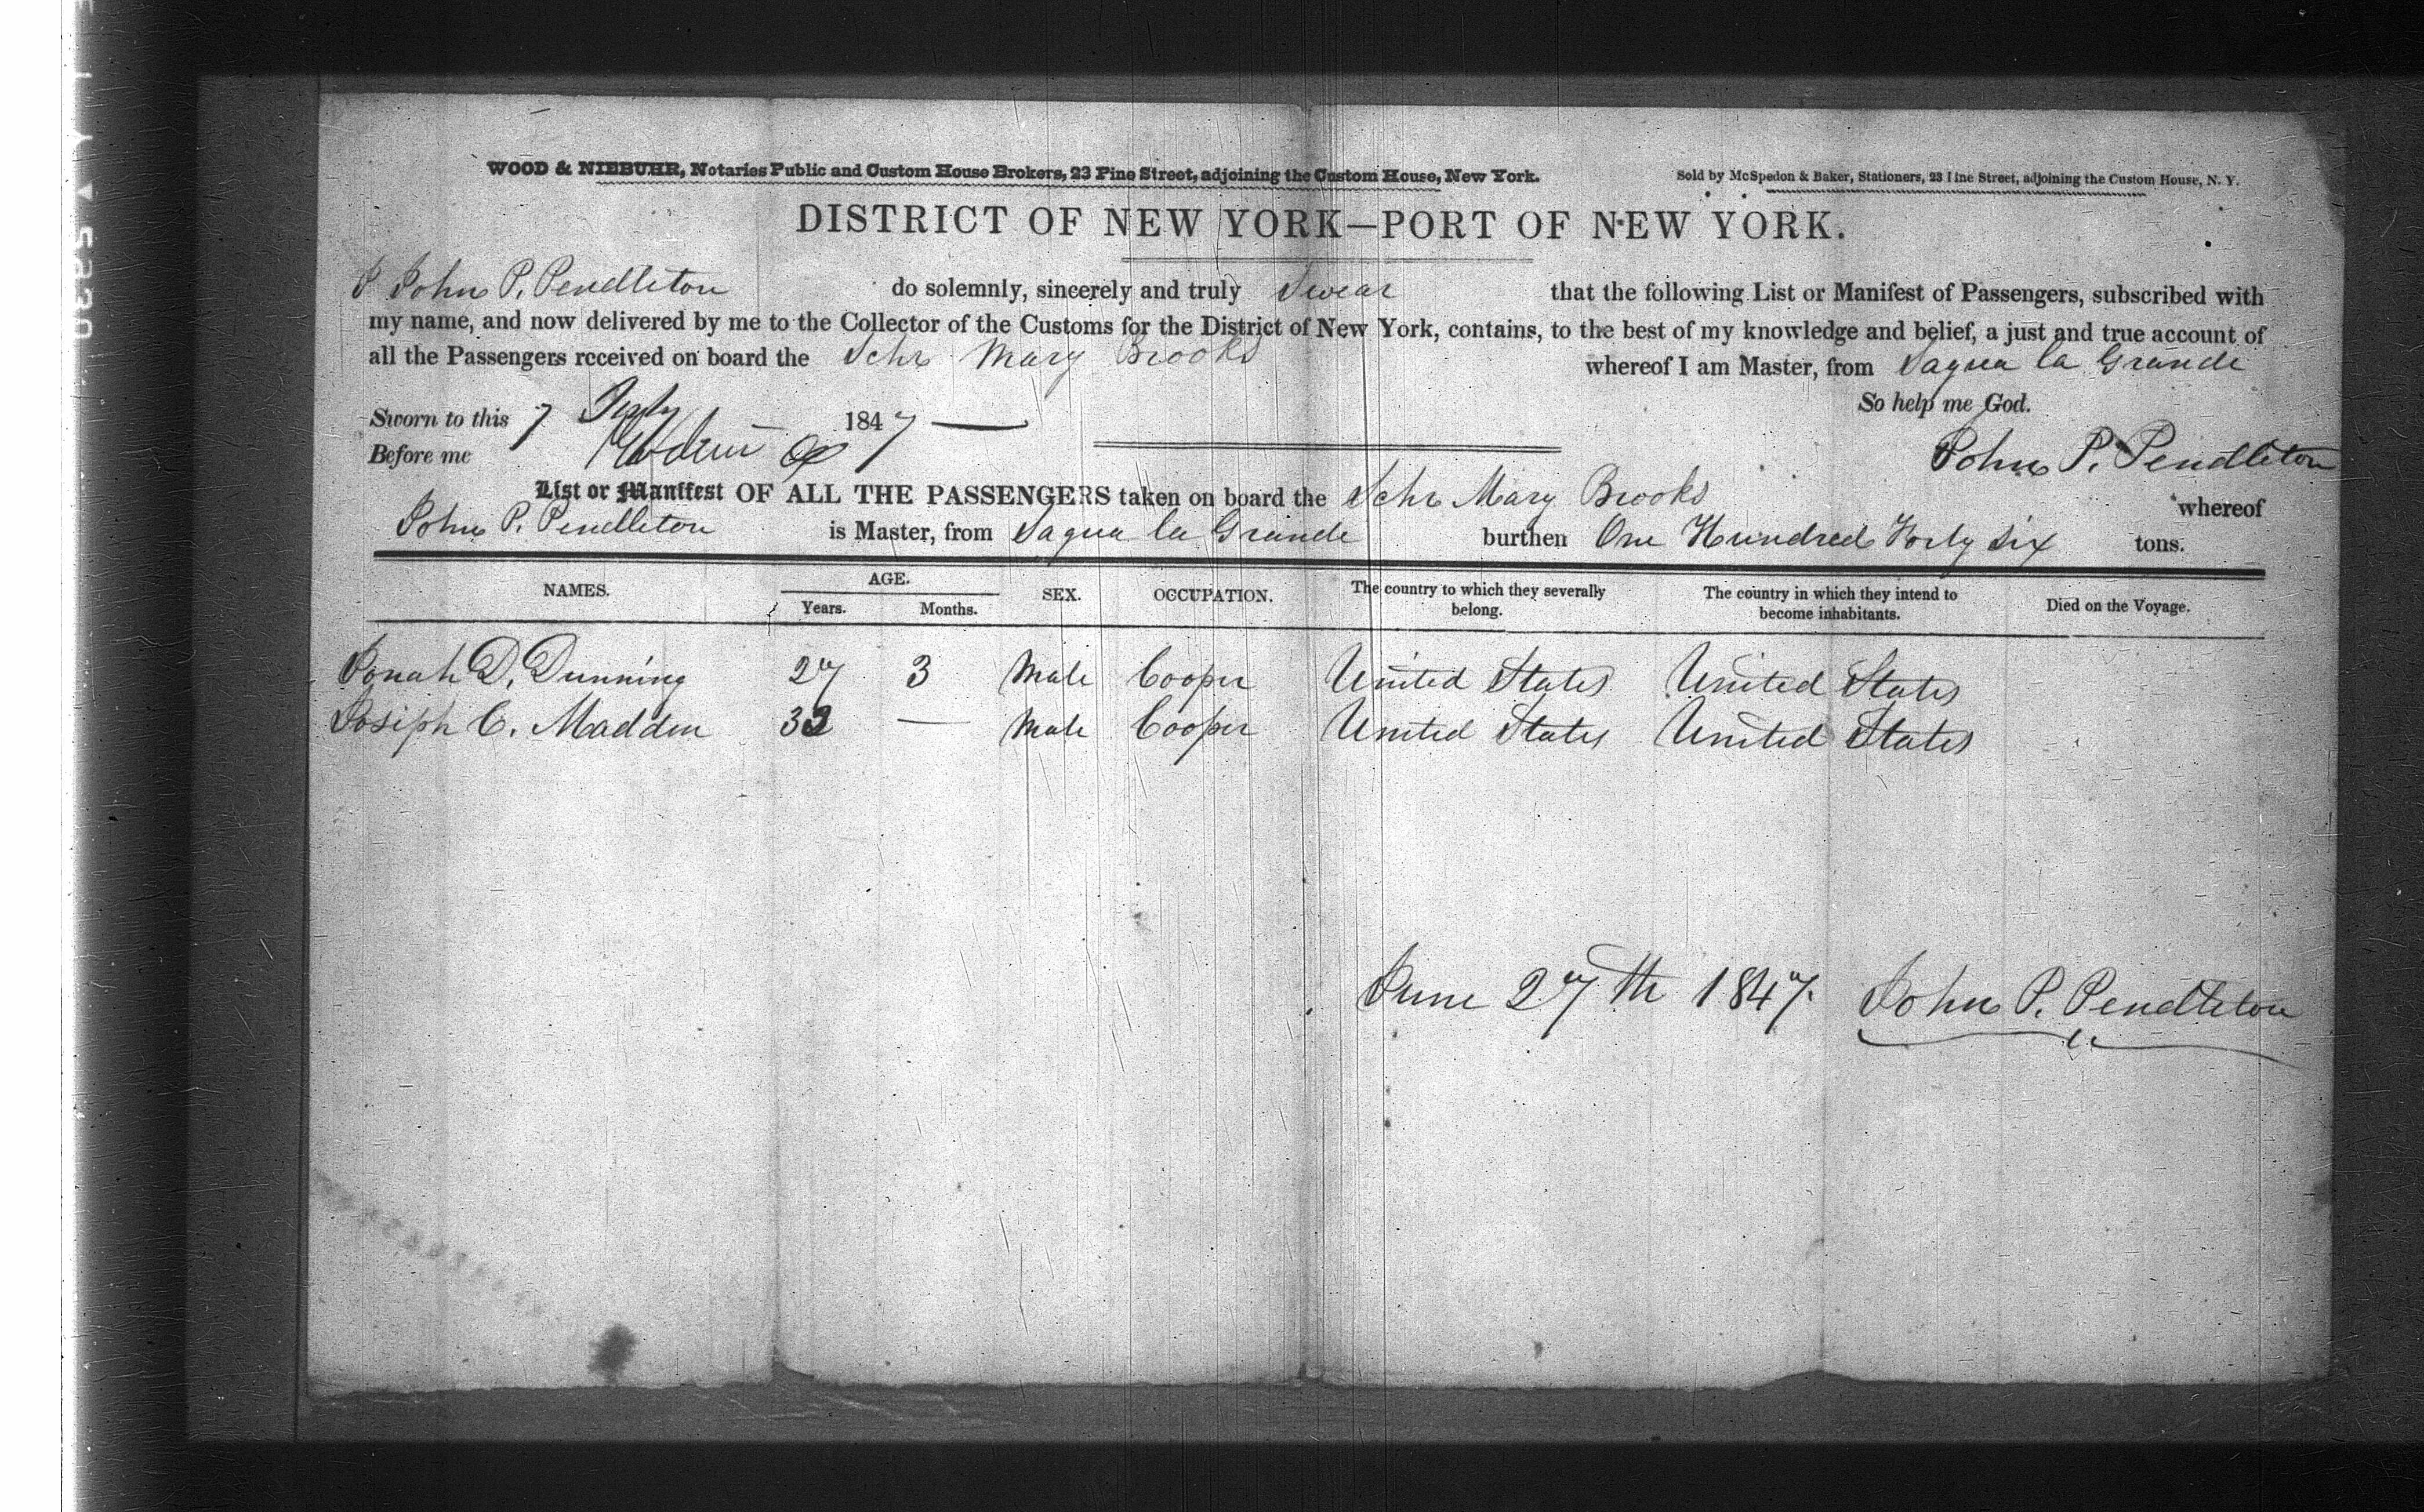 WOOD & NIEBUHR, Notaries Public and Custom House Brokers, 23 Pine Street, adjoining the Custom House, New York.
Sold by McSpedon & Baker, Stationers, 23 Pine Street, adjoining the Custom House, N. Y.
DISTRICT OF NEW YORK—PORT OF NEW YORK.
I John P. Pendleton do solemnly, sincerely and truly Swear that the following List or Manifest of Passengers, subscribed with
my name, and now delivered by me to the Collector of the Customs for the District of New York, contains, to the best of my knowledge and belief, a just and true account of
all the Passengers received on board the Schr Mary Brooks whereof I am Master, from Sagua la Grande
So help me God.
Sworn to this 7 July 1847
Before me
John P. Pendleton
List or Manifest OF ALL THE PASSENGERS taken on board the Schr Mary Brooks whereof
John P. Pendleton is Master, from Sagua la Grande burthen One Hundred Forty Six tons.
NAMES. AGE. Years. Months. SEX. OCCUPATION. The country to which they severally belong. The country in which they intend to become inhabitants. Died on the Voyage.
Jonah D. Dunning 27 3 Male Cooper United States United States
Joseph C. Madden 32 — Male Cooper United States United States
June 27th 1847. John P. Pendleton